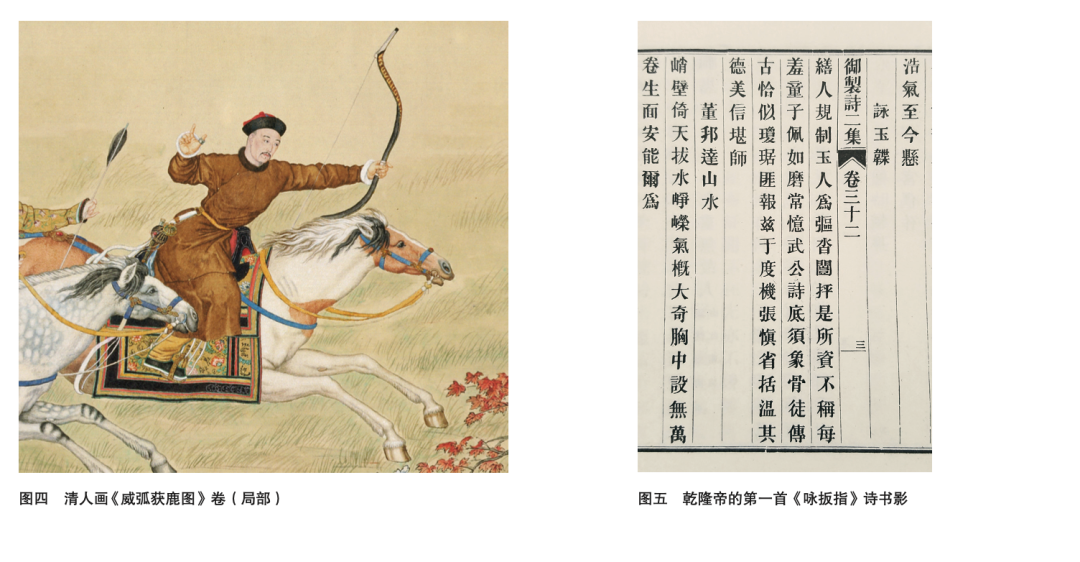 浩氣至今懸
詠玉韘
御製詩二集 卷三十二 三
繕人規制玉人為彄沓闓抨是所資不稱每
羞童子佩如磨常憶武公詩底須象骨徒傳
古恰似瓊琚匪報玆于度機張慎省括溫其
德美信堪師
董邦達山水
峭壁倚天拔水崢嶸氣概大奇胸中設無萬
卷生面安能爾為
图四 清人画《威弧获鹿图》卷（局部）
图五 乾隆帝的第一首《咏扳指》诗书影